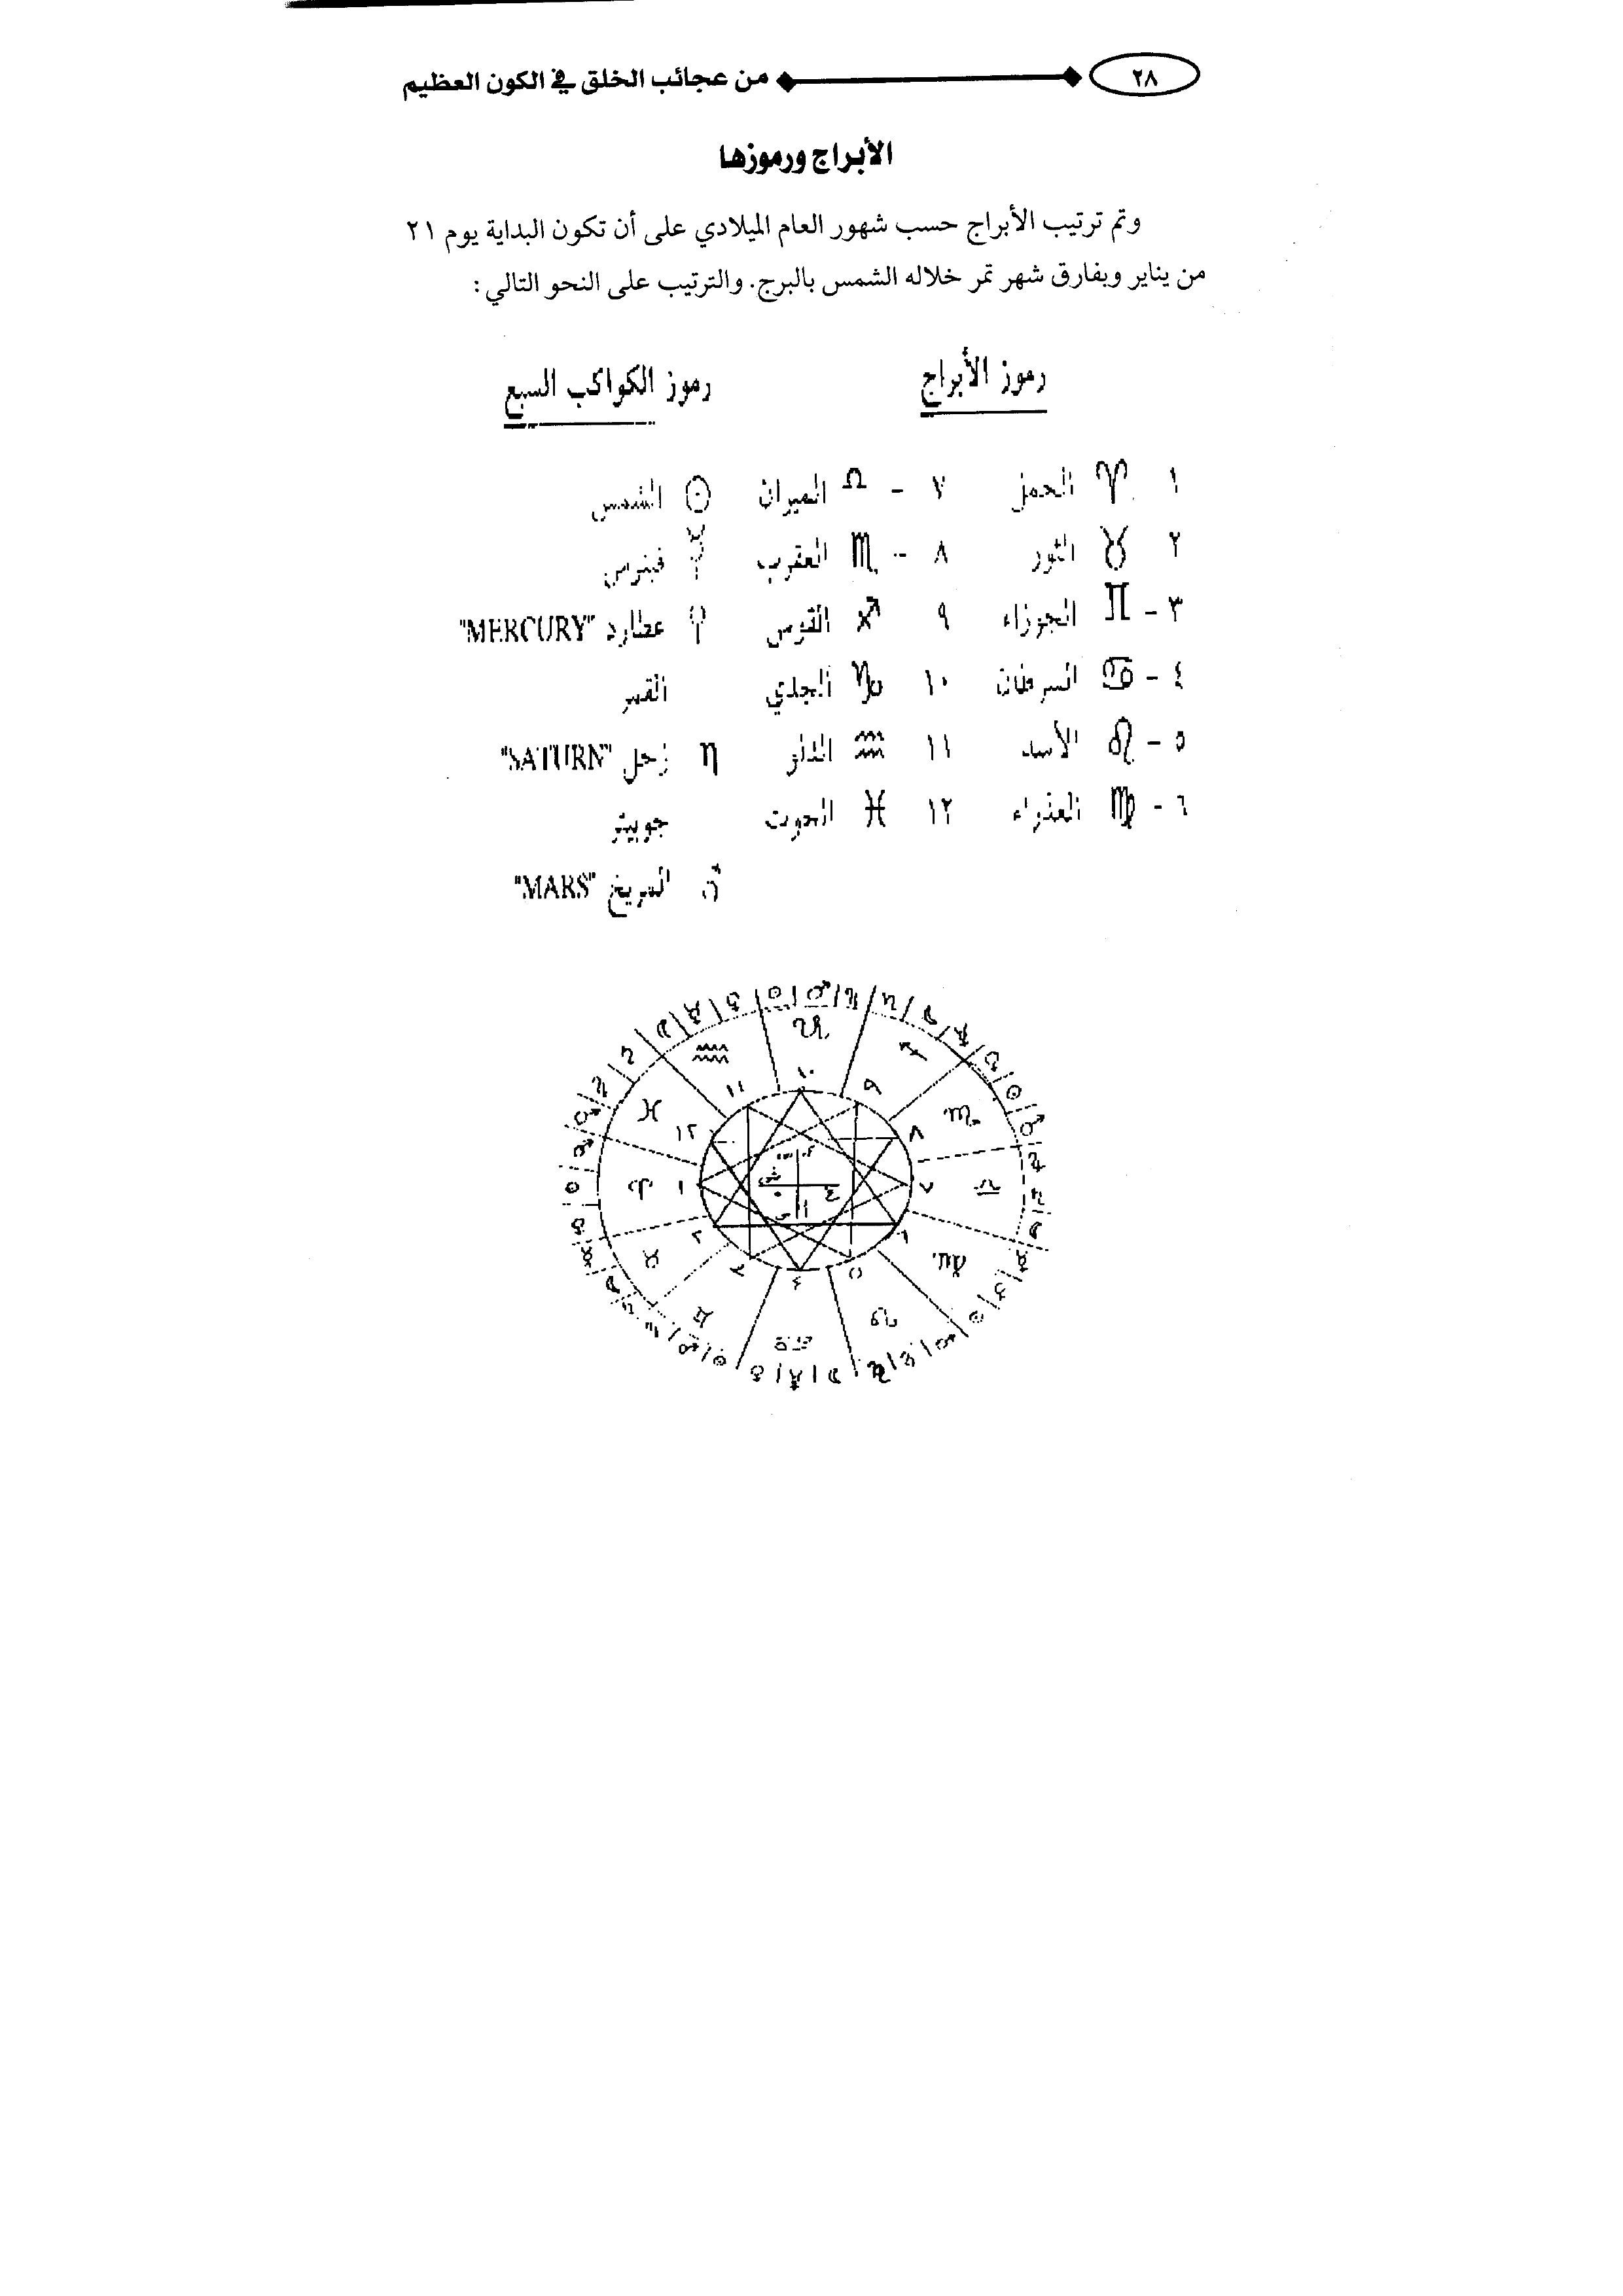 ٢٨ من عجائب الخلق في الكون العظيم
الأبراج ورموزها
وتم ترتيب الأبراج حسب شهور العام الميلادي على أن تكون البداية يوم ٢١
من يناير وبفارق شهر تمر خلاله الشمس بالبرج. والترتيب على النحو التالي:
رموز الأبراج رموز الكواكب السبع
١ ♈ الحمل ٧ - ♎ الميزان ☉ الشمس
٢ ♉ الثور ٨ - ♏ العقرب فينوس
٣ - ♊ الجوزاء ٩ ♐ القوس عطارد "MERCURY"
٤ - ♋ السرطان ١٠ ♑ الجدي القمر
٥ - ♌ الأسد ١١ ♒ الدلو η زحل "SATURN"
٦ - ♍ العذراء ١٢ ♓ الحوت جوبيتر
♂ المريخ "MARS"
١٠
١١ ٩
١٢ ٨
١ ٧
٢ ٦
٣ ٥
٤